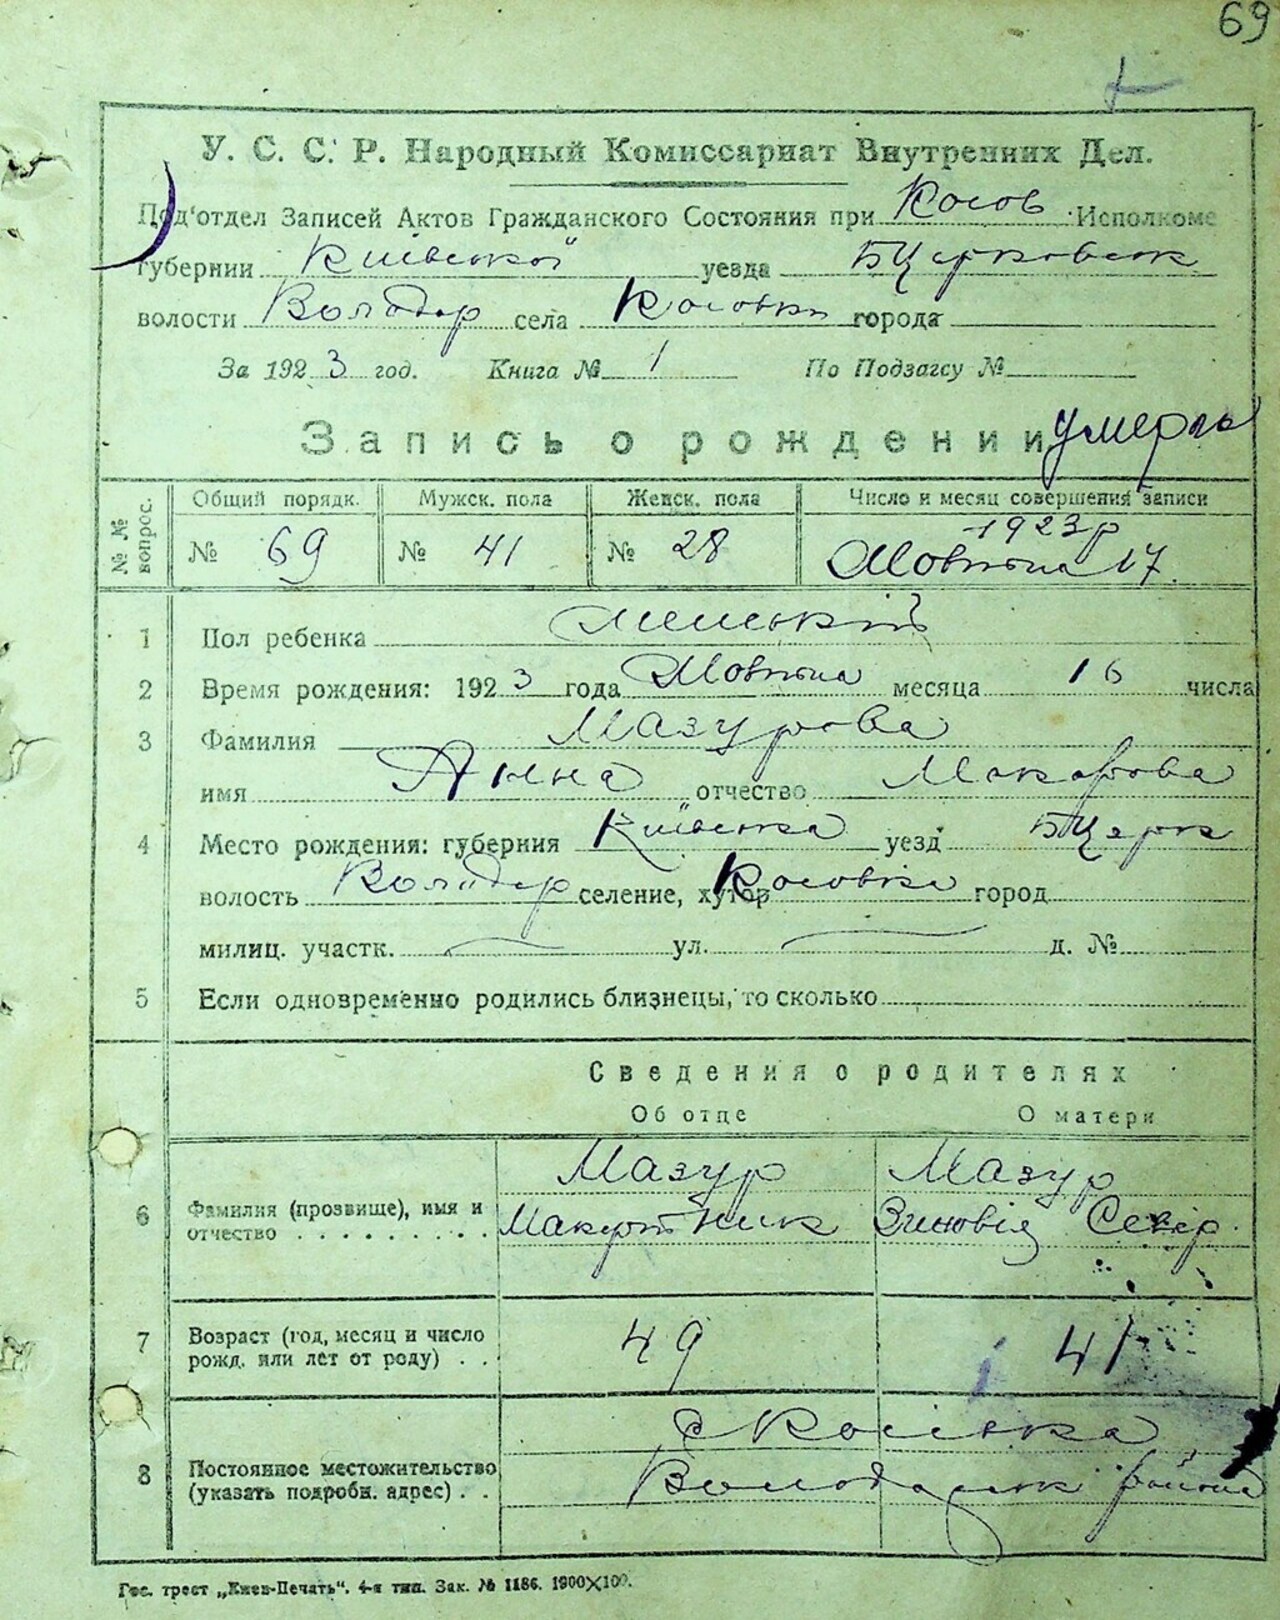 69
У. С. С. Р. Народный Комиссариат Внутренних Дел.
Под'отдел Записей Актов Гражданского Состояния при Косов Исполкоме
губернии Київської уезда БЦерковськ
волости Володар села Косовки города
За 1923 год. Книга № 1 По Подзагсу №
Запись о рождении умерла
№ № вопрос. Общий порядк. Мужск. пола Женск. пола Число и месяц совершения записи
№ 69 № 41 № 28 1923 р Жовтня 17
1 Пол ребенка
2 Время рождения: 1923 года Жовтня месяца 16 числа
3 Фамилия Мазурова
имя Анна отчество Макарова
4 Место рождения: губерния Київська уезд БЦерк
волость Володар селение, хутор Косовка город
милиц. участк. ул. д. №
5 Если одновременно родились близнецы, то сколько
Сведения о родителях
Об отце О матери
6 Фамилия (прозвище), имя и отчество Мазур Мазур
Зиновія
7 Возраст (год, месяц и число рожд. или лет от роду) 49 41
8 Постоянное местожительство (указать подробн. адрес) с Косівка
Володарськ района
Гос. трест „Киев-Печать“. 4-я тип. Зак. № 1186. 1900×100.